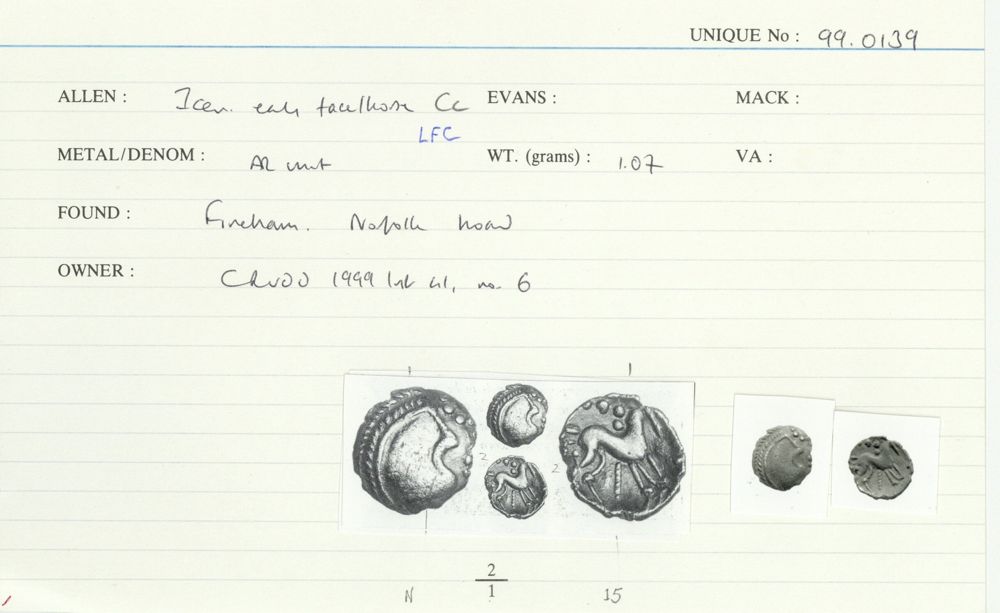 UNIQUE No : 99.0139
ALLEN : Icen. early face/horse Cc EVANS : MACK :
LFC
METAL/DENOM : AR unit WT. (grams) : 1.07 VA :
FOUND : Fincham. Norfolk hoard
OWNER : CR 1999 list 41, no. 6
2 2
2
1
N 15